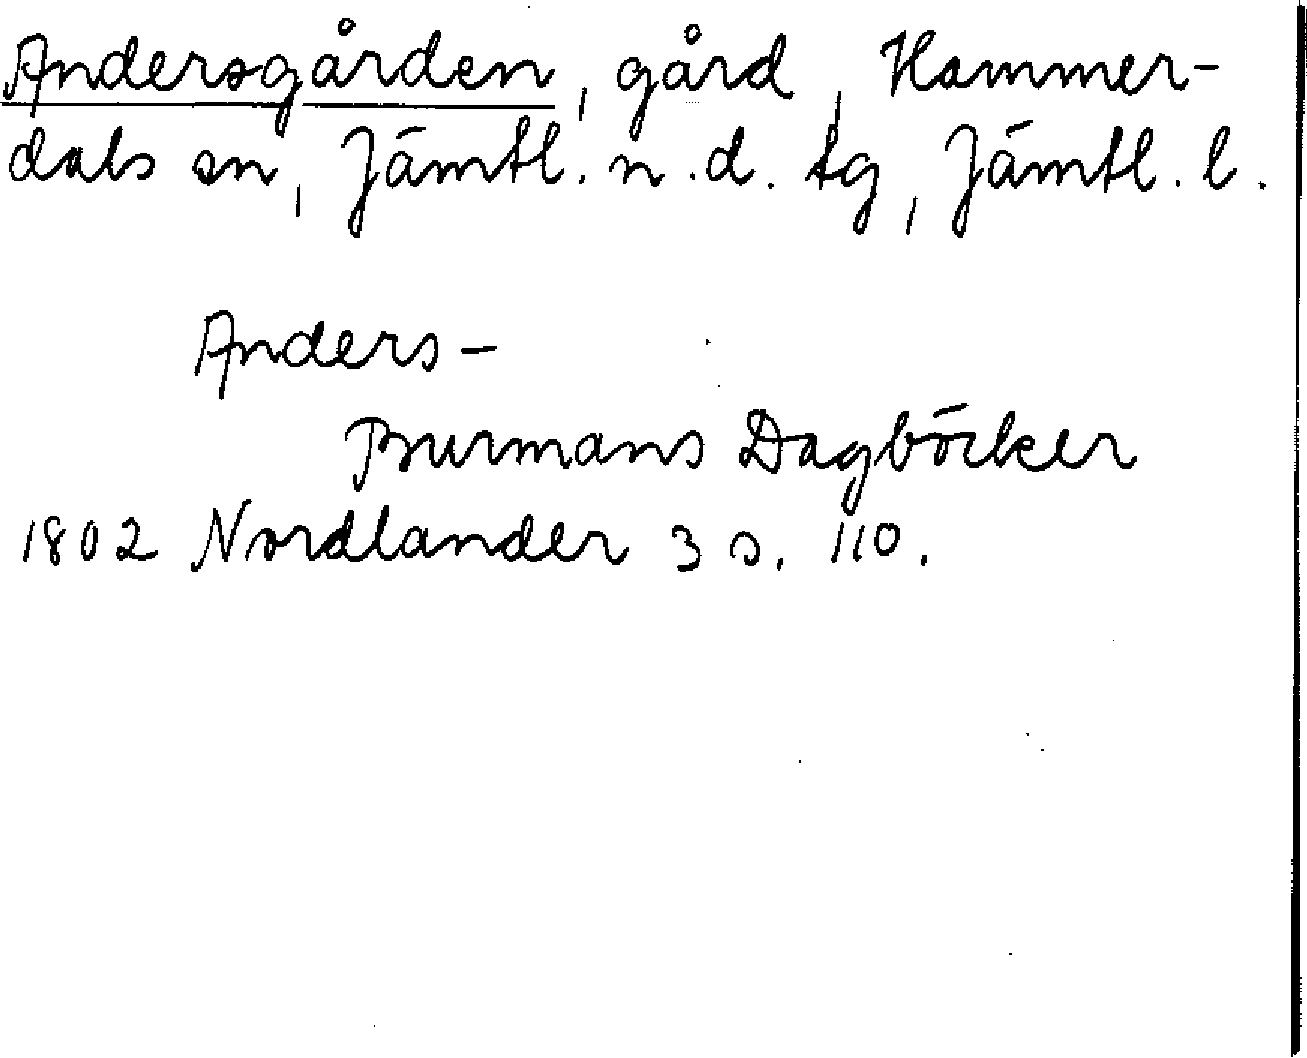 Andersgården, gård, Hammer-
dals sn, Jämtl. n.d. tg, Jämtl. l.
Anders-
Burmans Dagböcker
1802 Nordlander 3 s. 110.